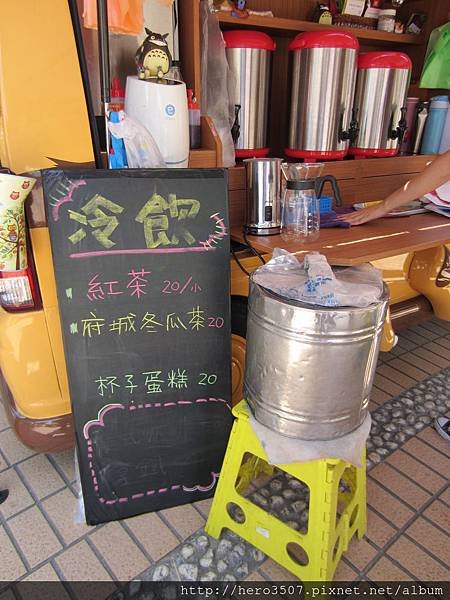 冷飲
紅茶 20/小
府城冬瓜茶20
杯子蛋糕 20
http://hero3507.pixnet.net/album